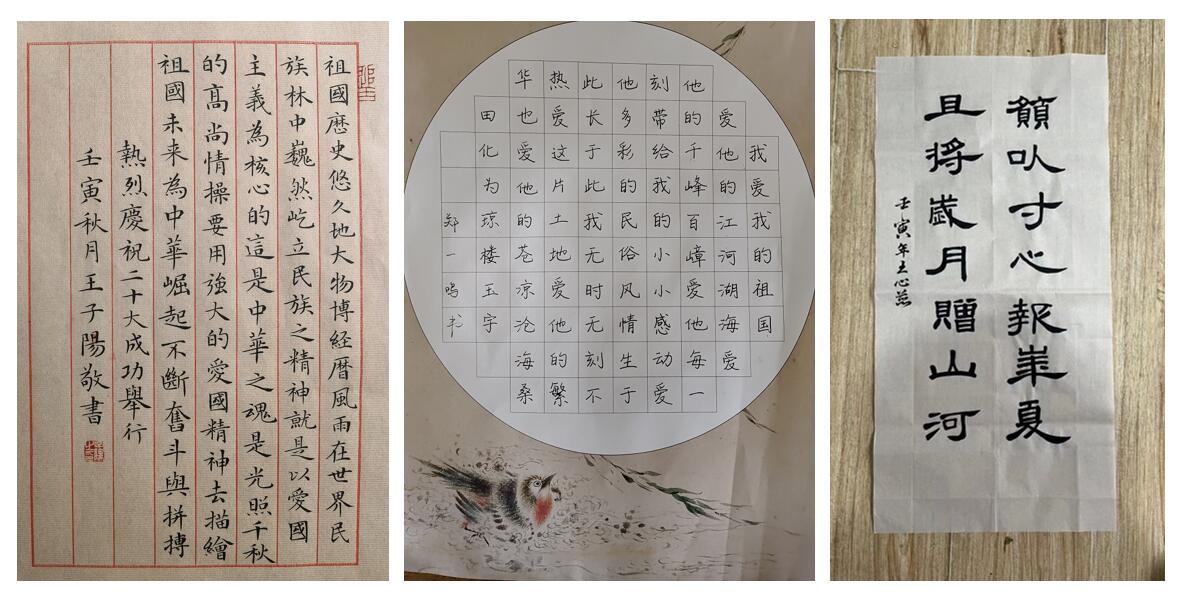 祖國歷史悠久地大物博經曆風雨在世界民
族林中巍然屹立民族之精神就是以愛國
主義為核心的這是中華之魂是光照千秋
的高尚情操要用強大的愛國精神去描繪
祖國未来為中華崛起不斷奮斗與拼搏
熱烈慶祝二十大成功舉行
壬寅秋月王子陽敬書
我爱我的祖国
爱他的江河湖海爱
他的千峰百嶂爱他每一
刻带给我的小小感动爱
他多彩的民俗风情生于
此长于此我无时无刻不
热爱这片土地爱他的繁
华也爱他的苍凉沧海桑
田化为琼楼玉宇
郑一鸣书
願以寸心報華夏
且将歲月贈山河
壬寅年王心